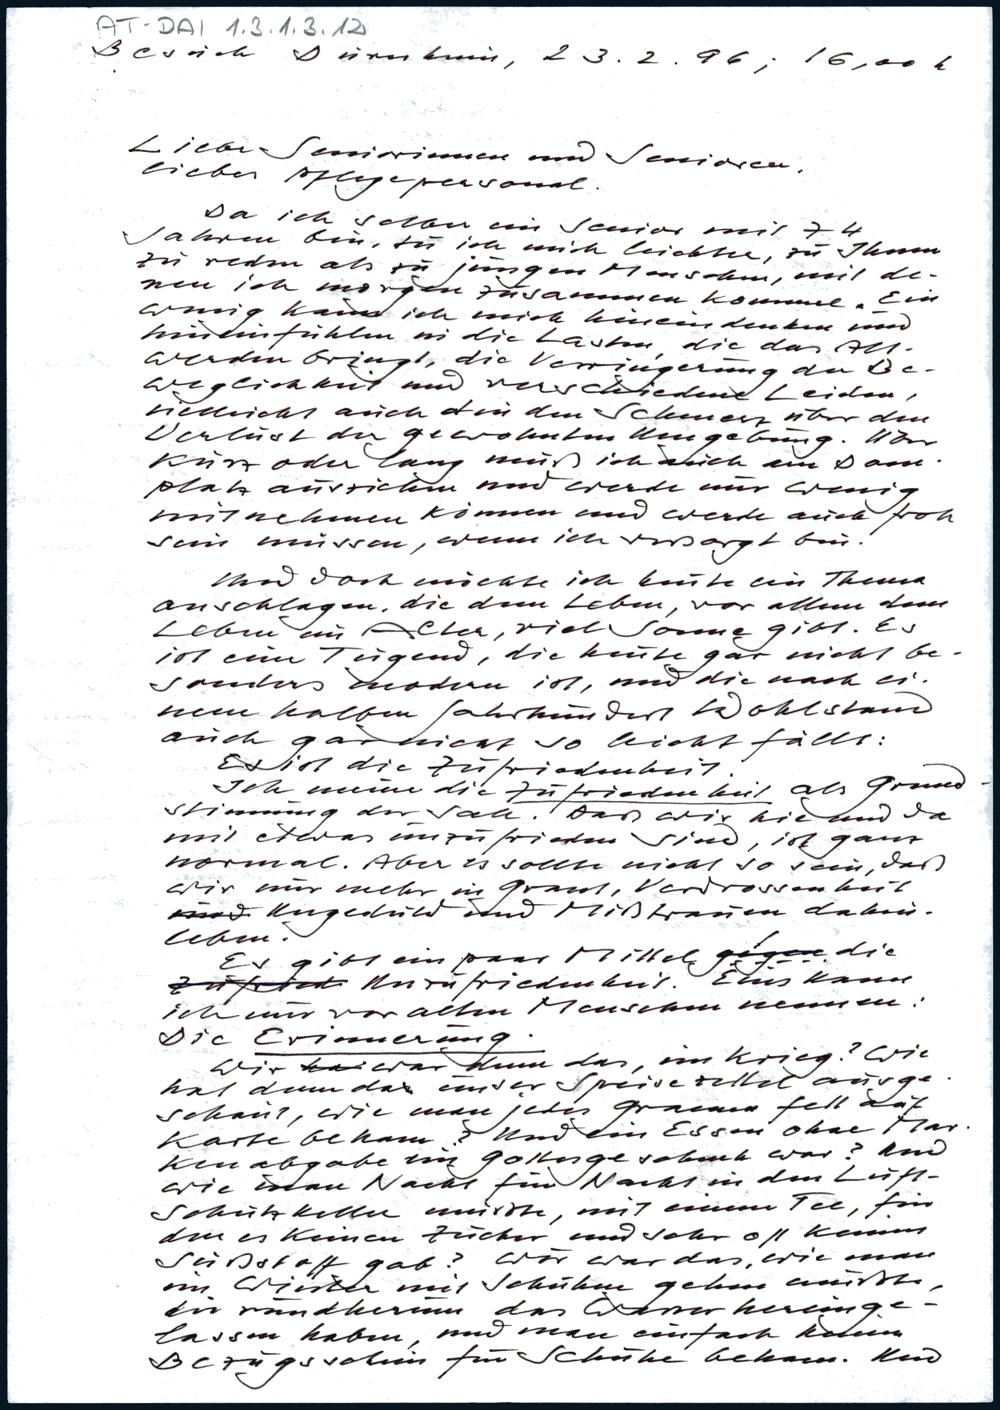 AT-DAI 1.3.1.3.12
Besuch Dürnkrut, 23.2.96; 16,00 h
Liebe Seniorinnen und Senioren,
liebes Pflegepersonal.
Da ich selber ein Senior mit 74
Jahren bin, tu ich mich leichter, zu Ihnen
zu reden als zu jungen Menschen, mit de-
nen ich morgen zusammen komme. Ein
wenig kann ich mich hineindenken und
hineinfühlen in die Lasten, die das Alt-
werden bringt, die Verringerung der Be-
weglichkeit und verschiedene Leiden,
vielleicht auch in den Schmerz über den
Verlust der gewohnten Umgebung. Über
kurz oder lang muß ich auch am Dom-
platz ausziehen und werde nur wenig
mitnehmen können und werde auch froh
sein müssen, wenn ich versorgt bin.
Und doch möchte ich heute ein Thema
anschlagen, die dem Leben, vor allem dem
Leben im Alter, viel Sonne gibt. Es
ist eine Tugend, die heute gar nicht be-
sonders modern ist, und die nach ei-
nem halben Jahrhundert Wohlstand
auch gar nicht so leicht fällt:
Es ist die Zufriedenheit.
Ich meine die Zufriedenheit als Grund-
stimmung der Seele. Daß wir hie und da
mit etwas unzufrieden sind, ist ganz
normal. Aber es sollte nicht so sein, daß
wir nur mehr in Grant, Verdrossenheit
und Ungeduld und Mißtrauen dahin-
leben.
Es gibt ein paar Mittel gegen die
Zufried Unzufriedenheit. Eins kann
ich nur vor alten Menschen nennen:
Die Erinnerung.
Wie war denn das, im Krieg? Wie
hat denn da unser Speisezettel ausge-
schaut, wie man jedes Gramm Fett auf
Karte bekam? Und ein Essen ohne Mar-
kenabgabe ein Gottesgeschenk war? Und
wie man Nacht für Nacht in den Luft-
schutzkeller mußte, mit einem Tee, für
den es keinen Zucker und sehr oft keinen
Süßstoff gab? Wie war das, wie man
im Winter mit Schuhen gehen mußte,
die rundherum das Wasser hereinge-
lassen haben, und man einfach keinen
Bezugsschein für Schuhe bekam. Und